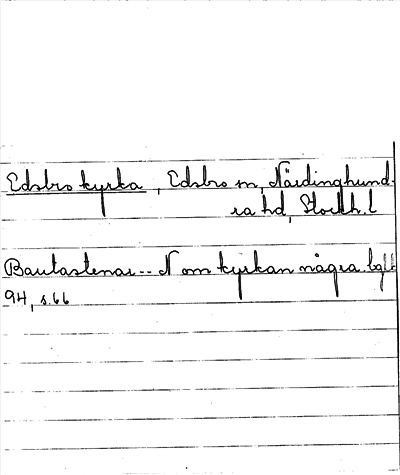 Edsbro kyrka, Edsbro sn, Närdinghund-
ra hd, Stockh. l
Bautastenar -- N om kyrkan några. bgl
94, s. 66